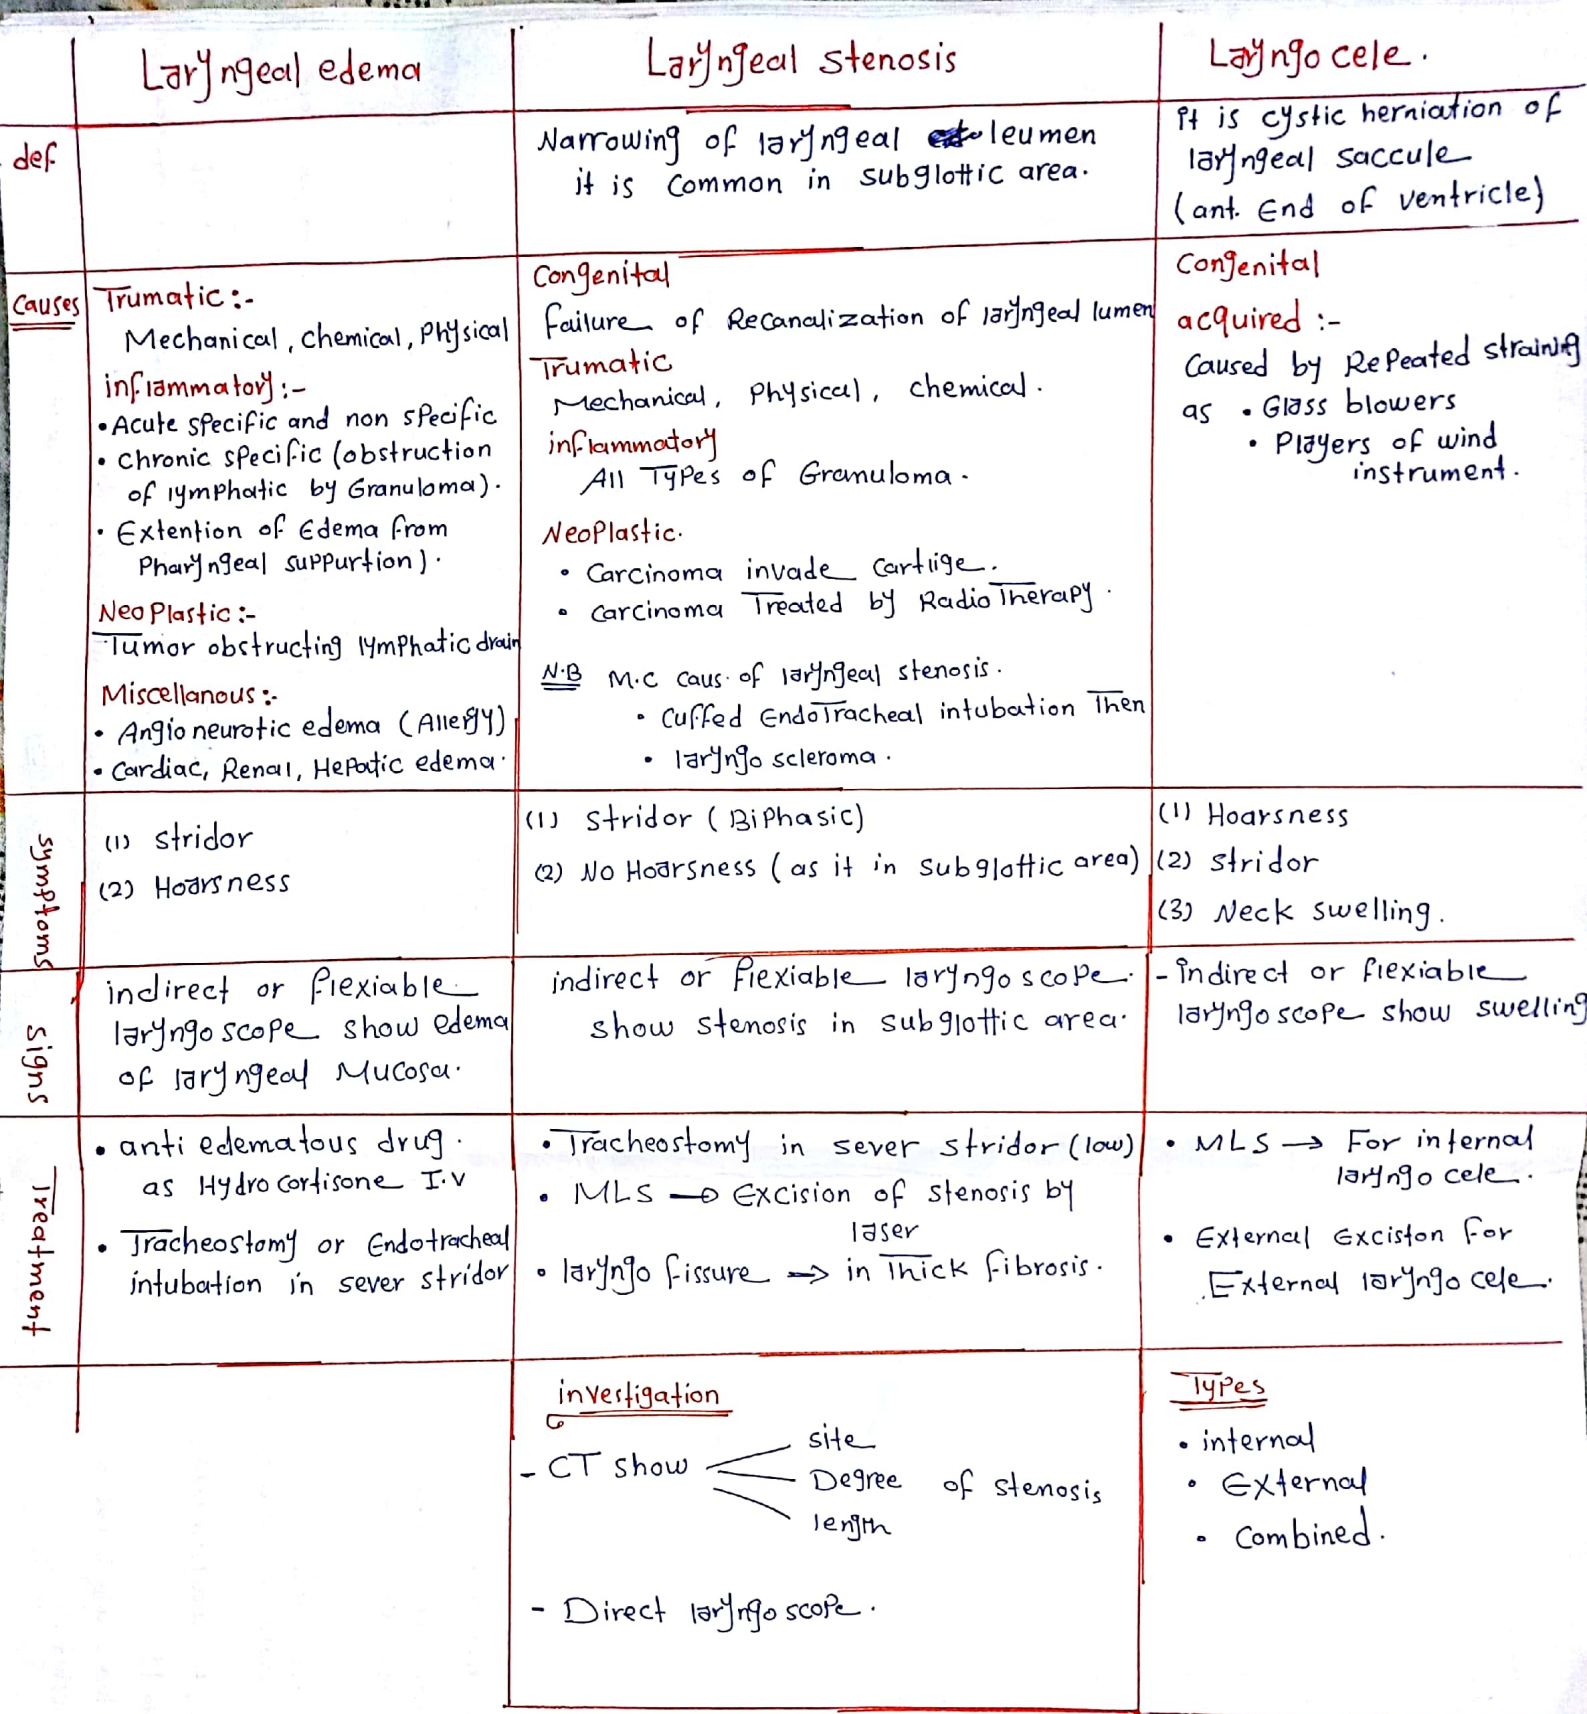 Laryngeal edema
Laryngeal stenosis
Laryngo cele.
def
Narrowing of laryngeal leumen
it is common in subglottic area.
it is cystic herniation of
laryngeal saccule
(ant. End of ventricle)
causes
Trumatic :-
Mechanical, chemical, Physical
inflammatory :-
• Acute specific and non specific
• chronic specific (obstruction
of lymphatic by Granuloma).
• Extention of Edema from
Pharyngeal suppurtion).
Neo Plastic :-
Tumor obstructing lymphatic drain
Miscellanous :-
• Angio neurotic edema (Allergy)
• Cardiac, Renal, Hepatic edema.
Congenital
failure of Recanalization of laryngeal lumen
Trumatic
Mechanical, Physical, chemical.
inflammatory
All Types of Granuloma.
NeoPlastic.
• Carcinoma invade cartiige.
• carcinoma Treated by Radio Therapy.
N.B M.C caus. of laryngeal stenosis.
• Cuffed EndoTracheal intubation Then
• laryngo scleroma.
Congenital
acquired :-
Caused by Repeated straining
as • Glass blowers
• Players of wind
instrument.
symptoms
(1) stridor
(2) Hoarsness
(1) stridor (Biphasic)
(2) No Hoarsness (as it in subglottic area)
(1) Hoarsness
(2) stridor
(3) Neck swelling.
signs
indirect or flexiable
laryngo scope show edema
of laryngeal Mucosa.
indirect or flexiable laryngo scope.
show stenosis in subglottic area.
- indirect or flexiable
laryngo scope show swelling
Treatment
• anti edematous drug.
as Hydro cortisone I.v
• Tracheostomy or Endotracheal
intubation in sever stridor
• Tracheostomy in sever stridor (low)
• MLS → Excision of stenosis by
laser
• laryngo fissure → in Thick fibrosis.
• MLS → For internal
laryngo cele.
• External Exciston for
External laryngo cele.
investigation
- CT show
site
Degree of stenosis
length
- Direct laryngo scope.
Types
• internal
• External
• Combined.